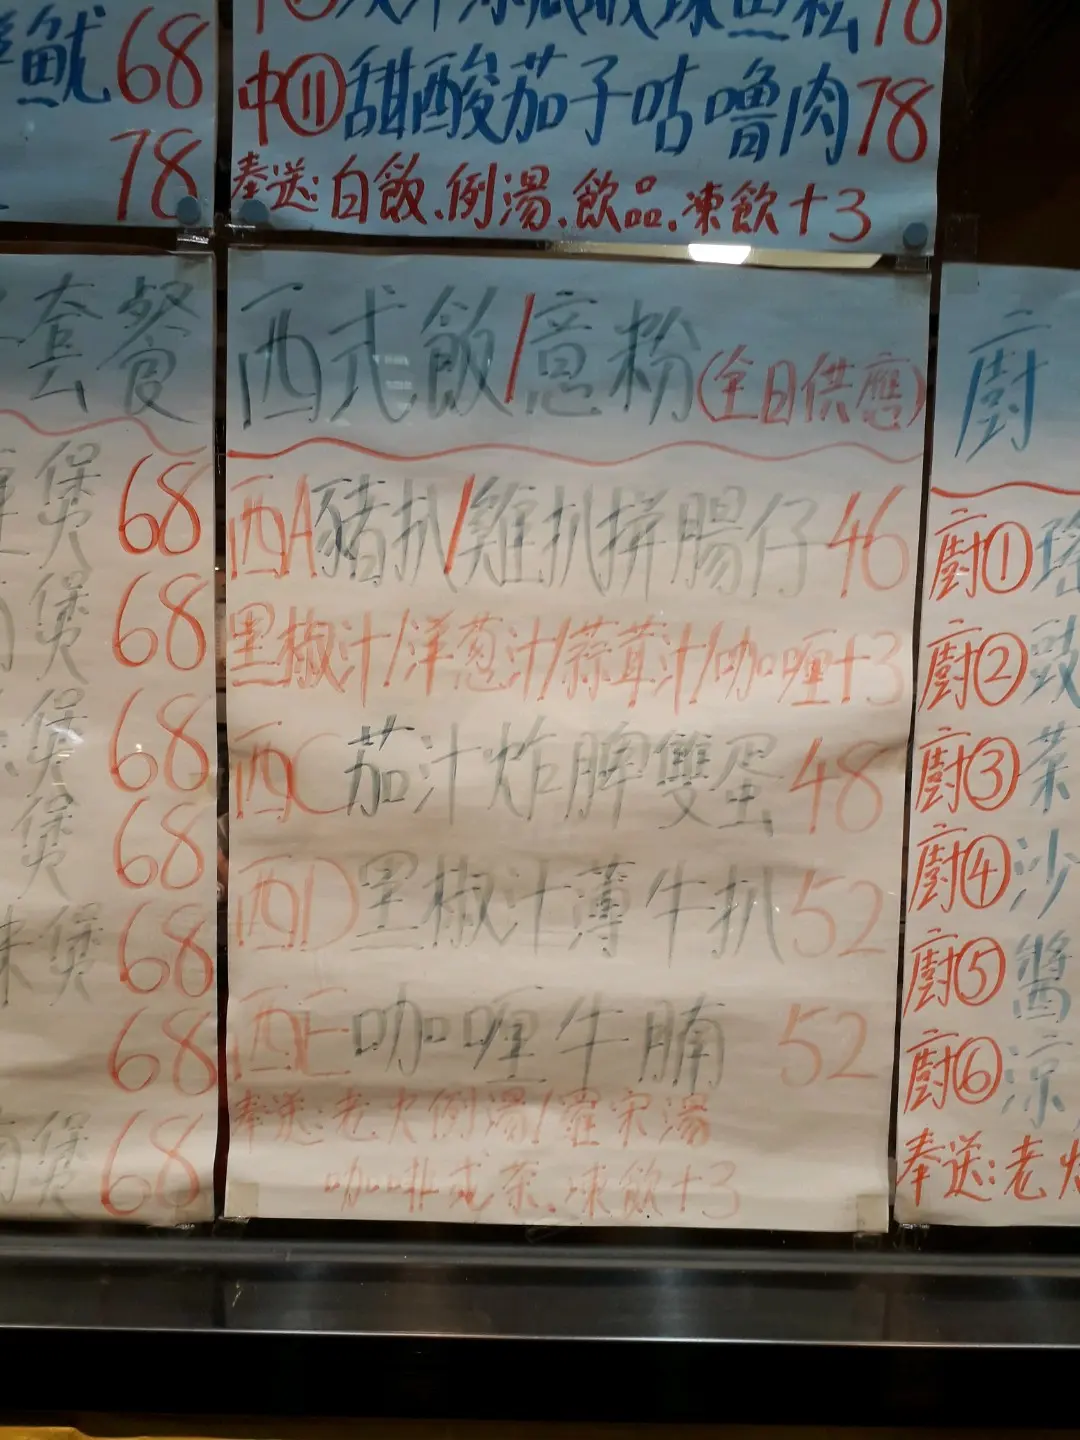 魷 68
78
中⑪甜酸茄子咕嚕肉78
奉送:白飯、例湯、飲品、凍飲+3
套餐
煲 68
煲 68
煲 68
煲 68
煲 68
68
煲 68
西式飯/意粉(全日供應)
西A豬扒/雞扒拼腸仔46
黑椒汁/洋葱汁/蒜茸汁/咖喱+3
西C茄汁炸脾雙蛋48
西D黑椒汁薄牛扒52
西E咖喱牛腩 52
奉送:老火例湯/羅宋湯
咖啡或茶、凍飲+3
廚
廚①瑤
廚②豉
廚③菜
廚④沙
廚⑤醬
廚⑥涼
奉送:老火